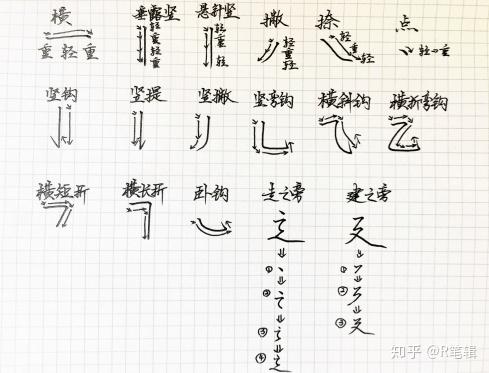 横 垂露竖 悬针竖 撇 捺 点
重轻重 轻重轻重 轻重轻 轻重轻 轻重轻 轻→重
竖钩 竖提 竖撇 竖弯钩 横斜钩 横折弯钩
横短折 横长折 卧钩 走之旁 建之旁
辶 廴
① ①
② ②
③ ③
④
知乎 @R笔辑